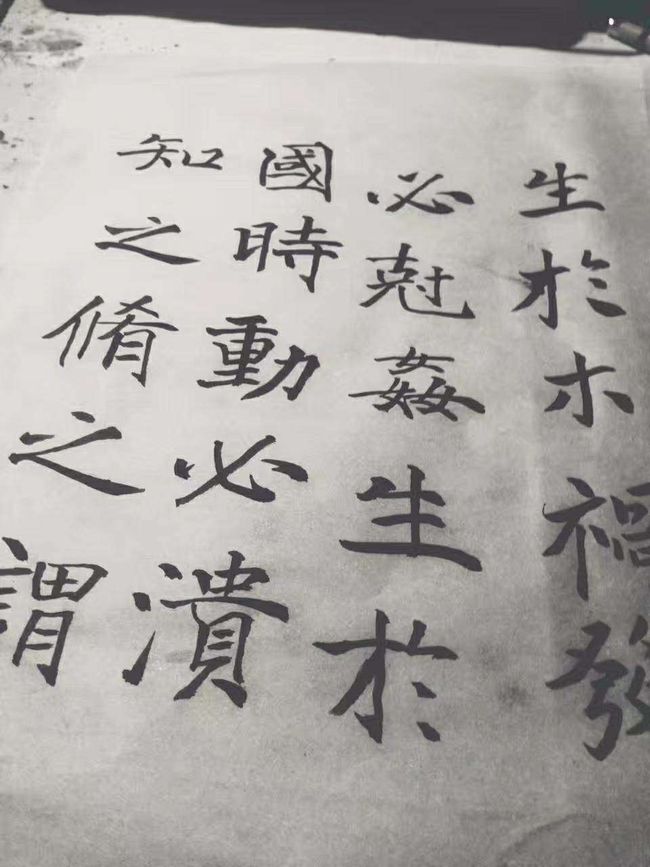 生於木禍發
必尅姦生於
國時動必潰
知之脩之謂